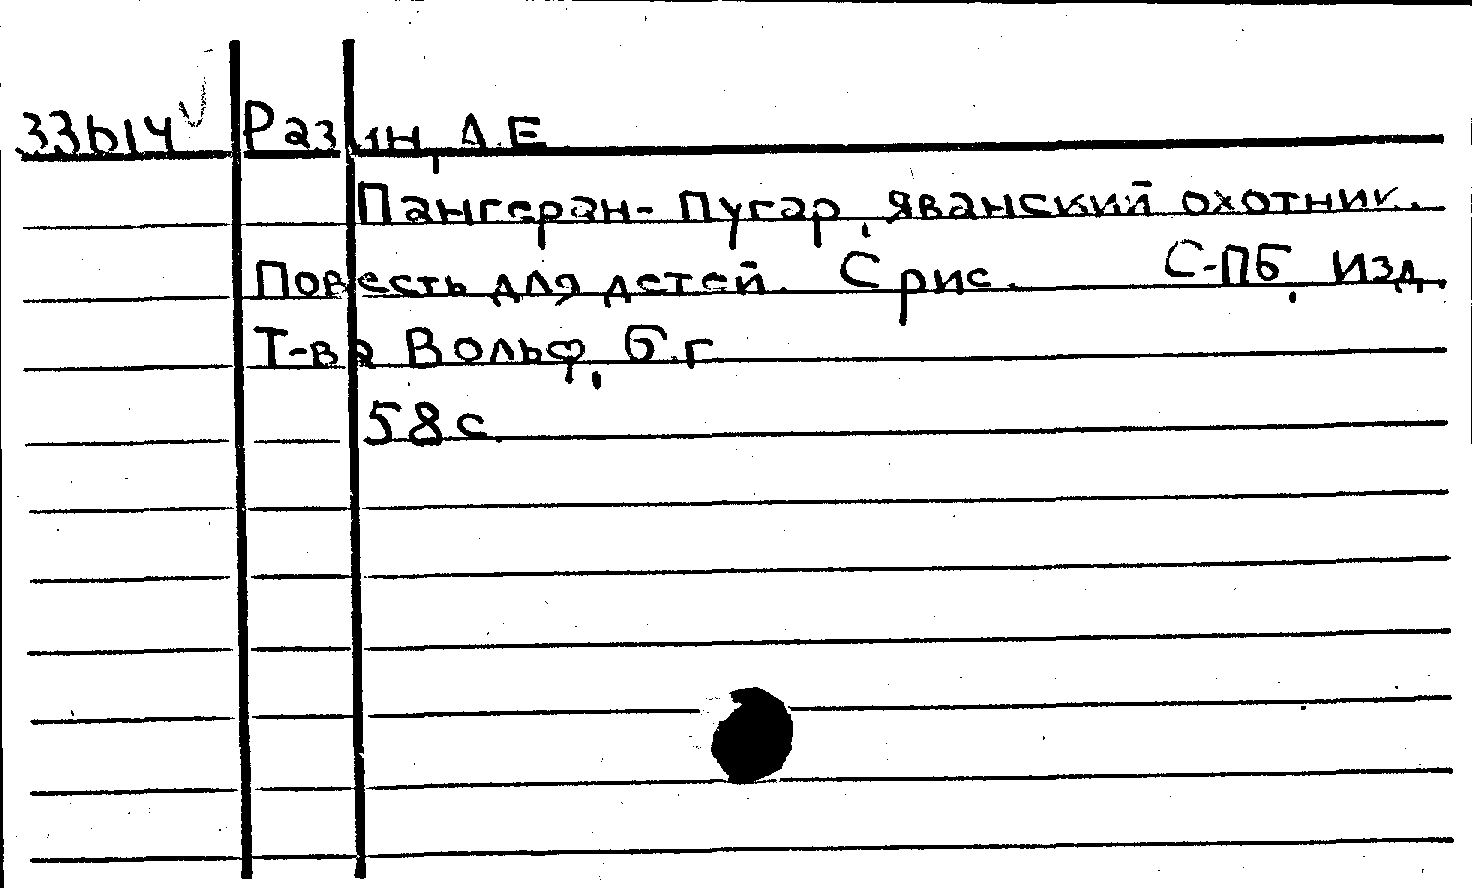 33614 Разин, А.Е.
Пангеран-Пугар, яванский охотник.
Повесть для детей. С рис. С-ПБ, Изд.
Т-ва Вольф, б.г
58 с.